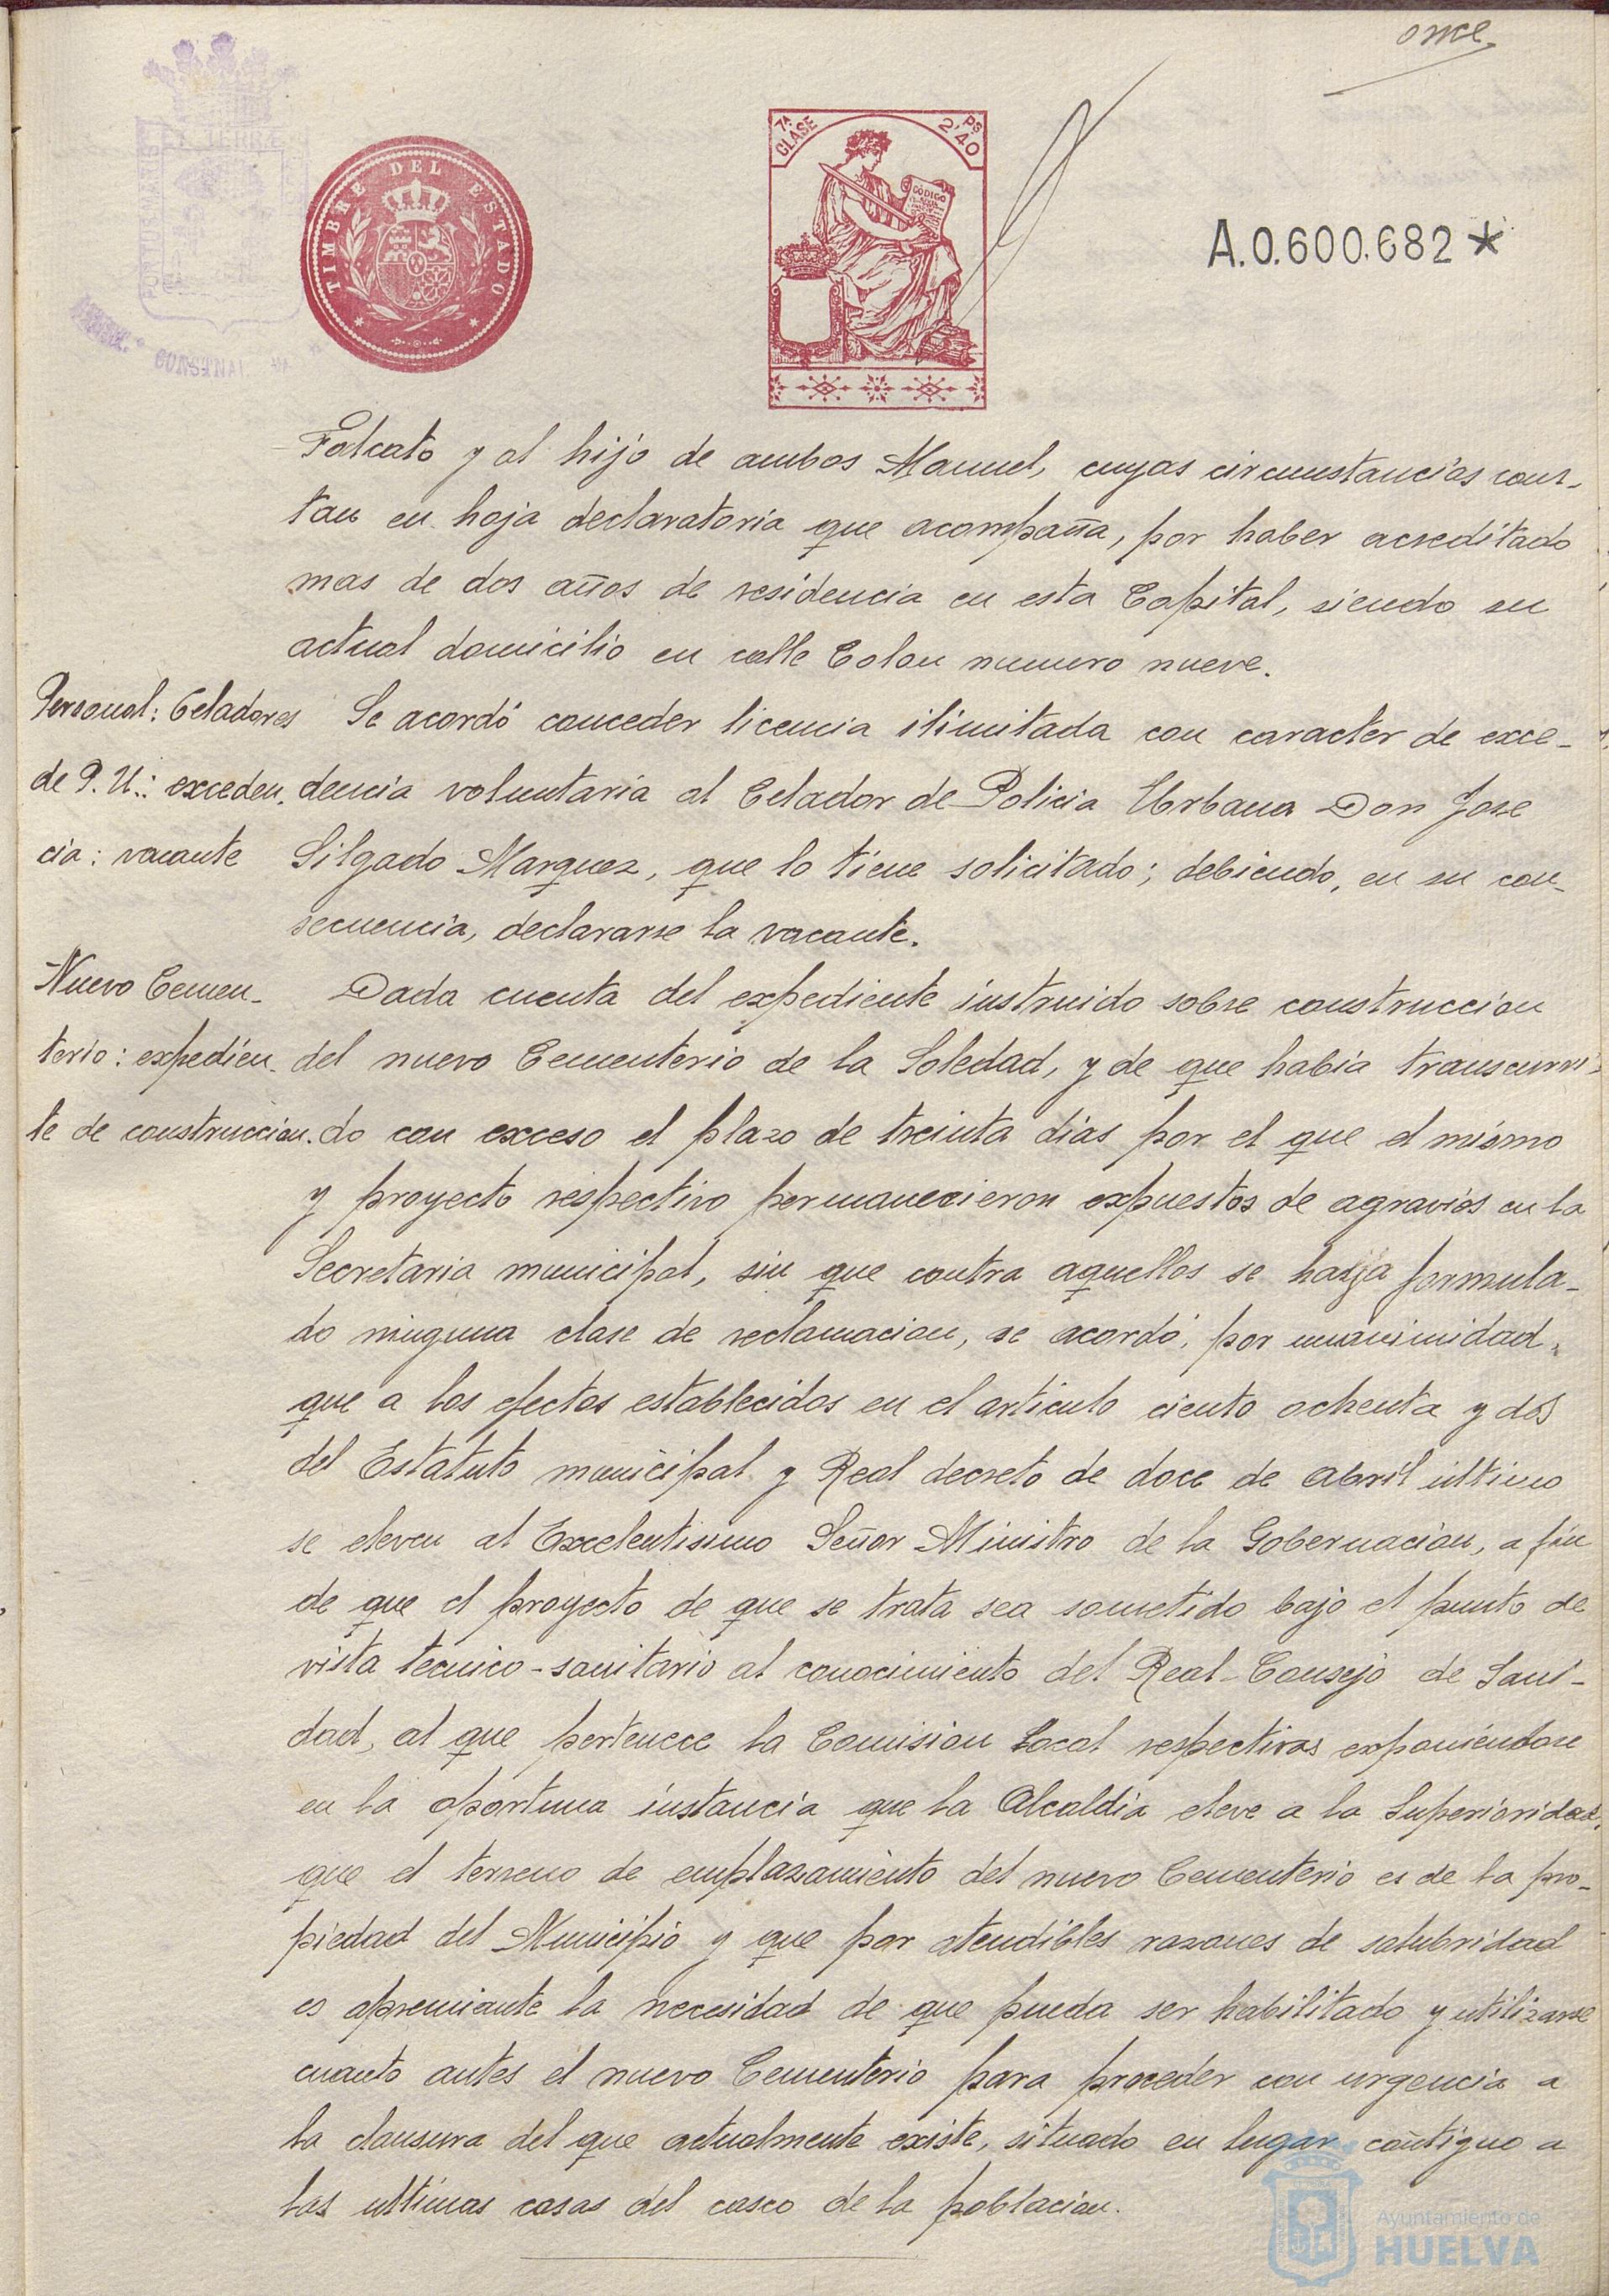 once
TIMBRE DEL ESTADO
7ª CLASE
2'40 PS
CODIGO
A.0.600.682*
Falcato y al hijo de ambos Manuel, cuyas circunstancias cons-
tan en hoja declaratoria que acompaña, por haber acreditado
mas de dos años de residencia en esta Capital, siendo su
actual domicilio en calle Colon numero nueve.
Personal: Celadores
de P. U.: exceden-
cia: vacante
Se acordó conceder licencia ilimitada con caracter de exce-
dencia voluntaria al Celador de Policia Urbana Don Jose
Silgado Marquez, que lo tiene solicitado; debiendo, en su con-
secuencia, declararse la vacante.
Nuevo Cemen-
terio: expedien-
te de construccion.
Dada cuenta del expediente instruido sobre construccion
del nuevo Cementerio de la Soledad, y de que habia transcurri-
do con exceso el plazo de treinta dias por el que el mismo
y proyecto respectivo permanecieron expuestos de agravios en la
Secretaria municipal, sin que contra aquellos se haya formula-
do ninguna clase de reclamacion, se acordó, por unanimidad,
que a los efectos establecidos en el articulo ciento ochenta y dos
del Estatuto municipal y Real decreto de doce de abril último
se eleven al Excelentisimo Señor Ministro de la Gobernacion, a fin
de que el proyecto de que se trata sea sometido bajo el punto de
vista tecnico-sanitario al conocimiento del Real Consejo de Sani-
dad, al que pertenece la Comision Local respectivas exponiendose
en la oportuna instancia que la Alcaldia eleve a la Superioridad,
que el terreno de emplazamiento del nuevo Cementerio es de la pro-
piedad del Municipio y que por atendibles razones de salubridad
es apremiante la necesidad de que pueda ser habilitado y utilizarse
cuanto antes el nuevo Cementerio para proceder con urgencia a
la clausura del que actualmente existe, situado en lugar contiguo a
las ultimas casas del casco de la poblacion.
Ayuntamiento de
HUELVA